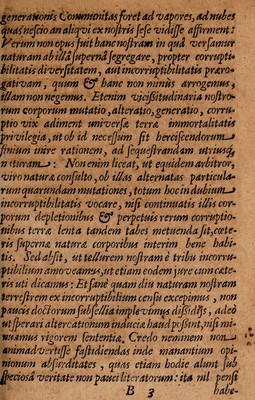 generationis Communitas foret ad vapores, ad nubes
quas nescio an aliqui ex nostris sese vidisse affirment:
Verum non opus fuit hanc nostram in qua versamur
naturam ab illâ supernâ segregare, propter corrupti-
bilitatis diversitatem, aut incorruptibilitatis præro-
gativam, quum & hanc non minùs arrogemus,
illam non negemus. Etenim vicissitudinaria nostro-
rum corporum mutatio, alteratio, generatio, corru-
ptio vix adiment universæ terræ immortalitatis
privilegia, ut ob id necessum sit herciscendorum
finium inire rationem, ad sequestrandam utriusq́,
naturam: Non enim liceat, ut equidem arbitror,
viro naturæ consulto, ob illas alternatas particula-
rum quarundam mutationes, totum hoc in dubium
incorruptibilitatis vocare, nisi continuatis illis cor-
porum depletionibus & perpetuis rerum corruptio-
nibus terræ lenta tandem tabes metuenda sit, cæte-
ris supernæ naturæ corporibus interim bene habi-
tis. Sed absit, ut tellurem nostram è tribu incorru-
ptibilium amoveamus, ut etiam eodem jure cum cæte-
ris uti dicamus: Et sanè quam diu naturam nostram
terrestrem ex incorruptibilium censu excepimus, non
paucis doctorum subsellia implevimus dissidiis, adeo
ut sperari altercationum induciæ haud possint, nisi mi-
nuamus rigorem sententiæ. Credo neminem non
animadvertisse fastidiendas inde manantium opi-
nionum absurditates, quas etiam hodie alunt sub
speciosâ veritate non pauci literatorum: ita nil pensi
B 3 habe-